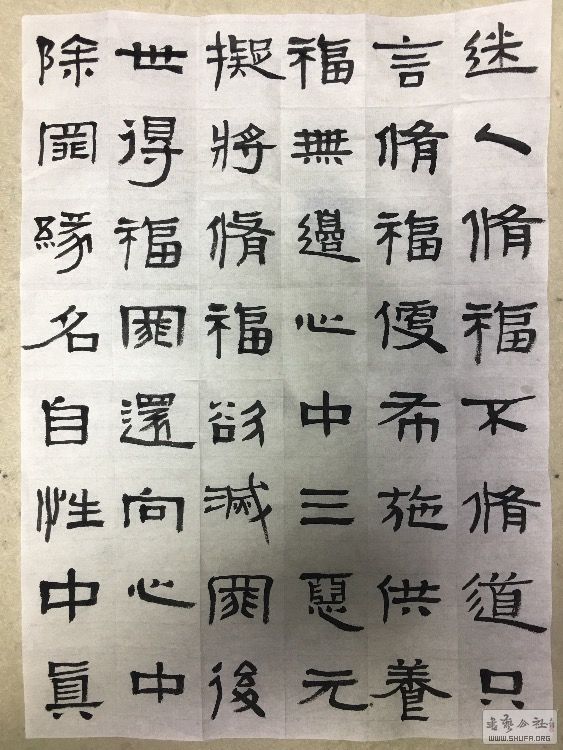 迷人脩福不脩道只
言脩福便布施供養
福無邊心中三惡元
擬將脩福欲滅罪後
世得福罪還向心中
除罪緣名自性中眞
书艺公社
WWW.SHUFA.ORG